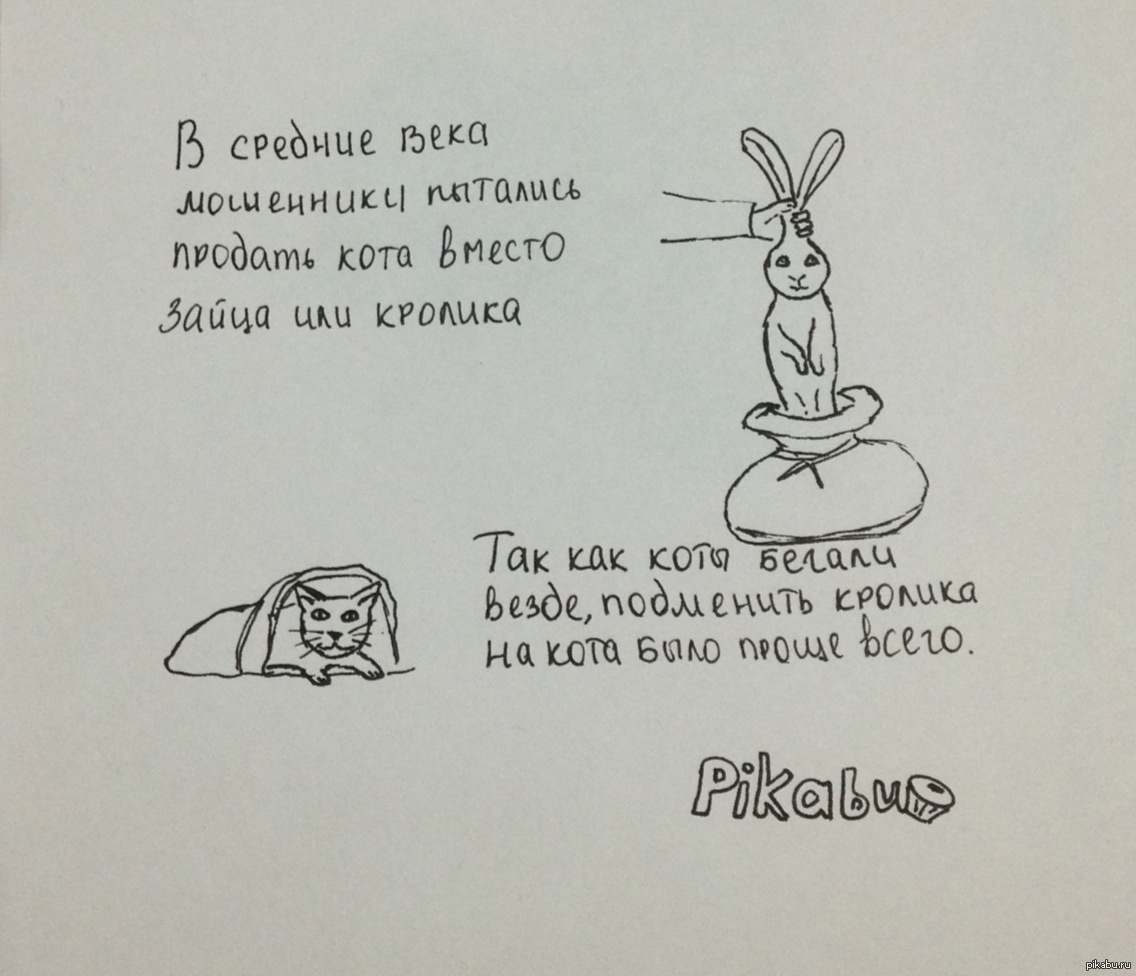 В средние века
мошенники пытались
продать кота вместо
зайца или кролика
Так как коты бегали
везде, подменить кролика
на кота было проще всего.
Pikabu
pikabu.ru